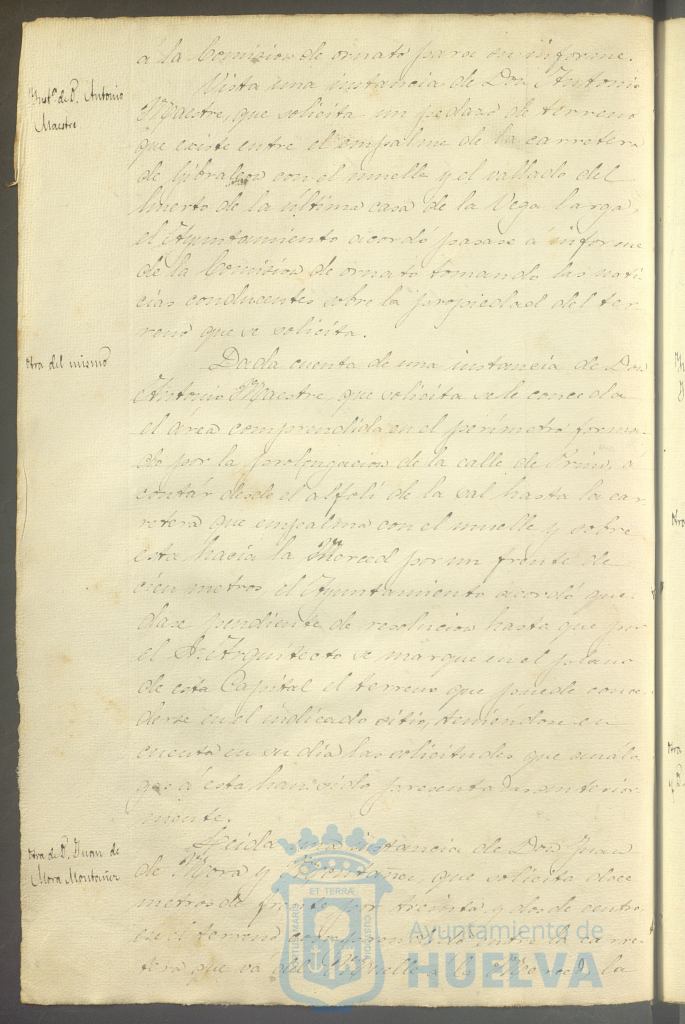 á la Comision de ornato para su informe.
Instª. de D. Antonio
Maestre
Vista una instancia de Don Antonio
Maestre, que solicita un pedazo de terreno
que existe entre el empalme de la carretera
de Gibraleon con el muelle y el vallado del
huerto de la última casa de la Vega larga,
el Ayuntamiento acordó pasase á informe
de la Comision de ornato tomando las noti-
cias conducentes sobre la propiedad del ter-
reno que se solicita.
Otra del mismo
Dada cuenta de una instancia de Don
Antonio Maestre, que solicita se le conceda
el area comprendida en el perímetro forma-
do por la prolongacion de la calle de Prim, á
contar desde el alfolí de la sal hasta la car-
retera que empalma con el muelle y sobre
esta hacia la Merced por un frente de
cien metros, el Ayuntamiento acordó que-
dase pendiente de resolucion hasta que por
el Sr. Arquitecto se marque en el plano
de esta Capital el terreno que puede conce-
derse en el indicado sitio, teniéndose en
cuenta en su dia las solicitudes que análo-
gas á esta han sido presentadas anterior-
mente.
Otra de D. Juan de
Mora Montañez
Leida una instancia de Don Juan
de Mora y Montañez, que solicita doce
metros de frente por treinta y dos de centro
en el terreno entre la carre-
tera que vá del Muelle á la Merced, la
PORTUS MARIS
ET TERRÆ
CUSTODIA
Ayuntamiento de
HUELVA